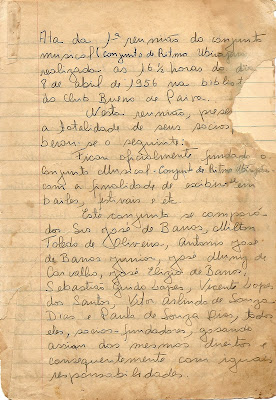 Ata da 1ª reunião do conjunto
musical (Conjunto de Ritmo
realizada as 16½ horas do dia
8 de Abril de 1956 na
do Club Bueno de Paiva.
Nesta reunião,
a totalidade de seus socios
beram-se o seguinte:
Ficou oficialmente fundado o
Conjunto Musical - Conjunto de Ritmo
com a finalidade de exibir em
bailes, festivais e etc
Este conjunto se compoe
dos Srs José de Barros, Milton
Toledo de Oliveira, Antonio José
de Barros Junior, José Muniz de
Carvalho, José Elizio de Barros,
Sebastião Guido Lopes, Vicente Lopes
dos Santos, Vitor Arlindo de Souza
Dias e Paulo de Souza Dias, todos
eles, socios-fundadores, gosando
assim dos mesmos direitos e
consequentemente com iguais
responsabilidades.